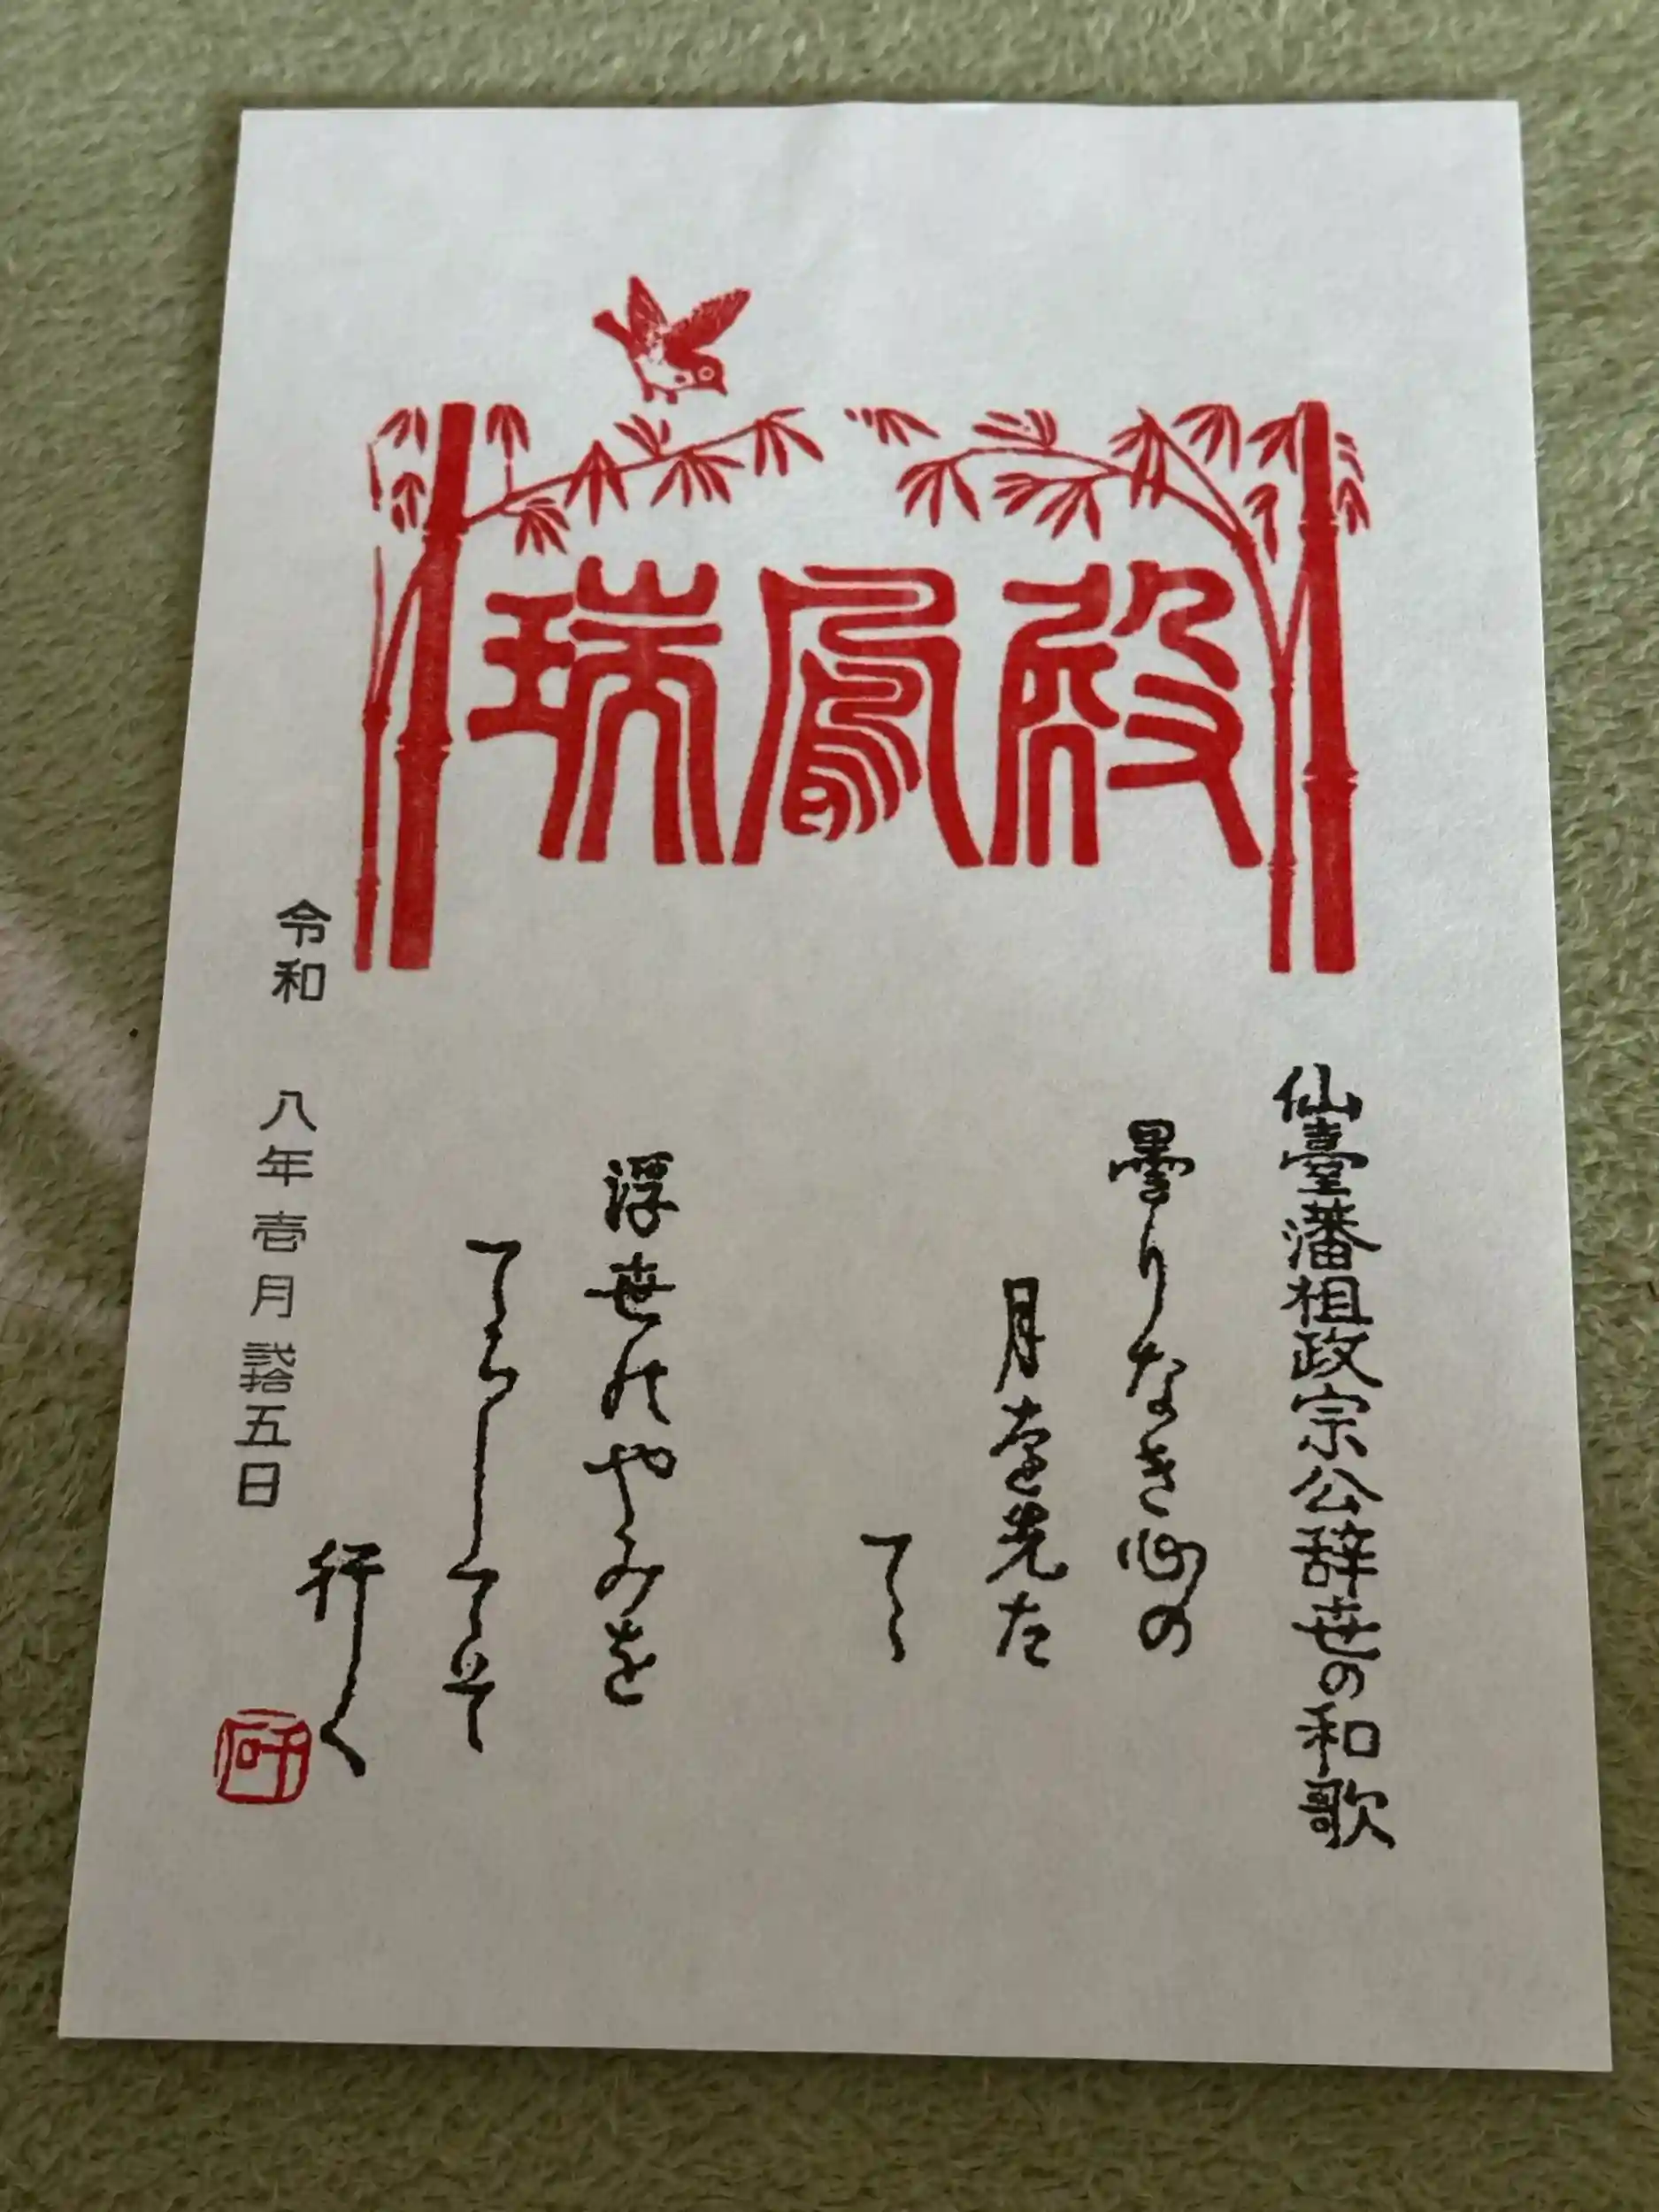 瑞鳳殿
仙臺藩祖政宗公辞世の和歌
曇りなき心の
月を先た
てゝ
浮世のやみを
てらしてそ
行く
令和 八年 壱月 弐拾五日